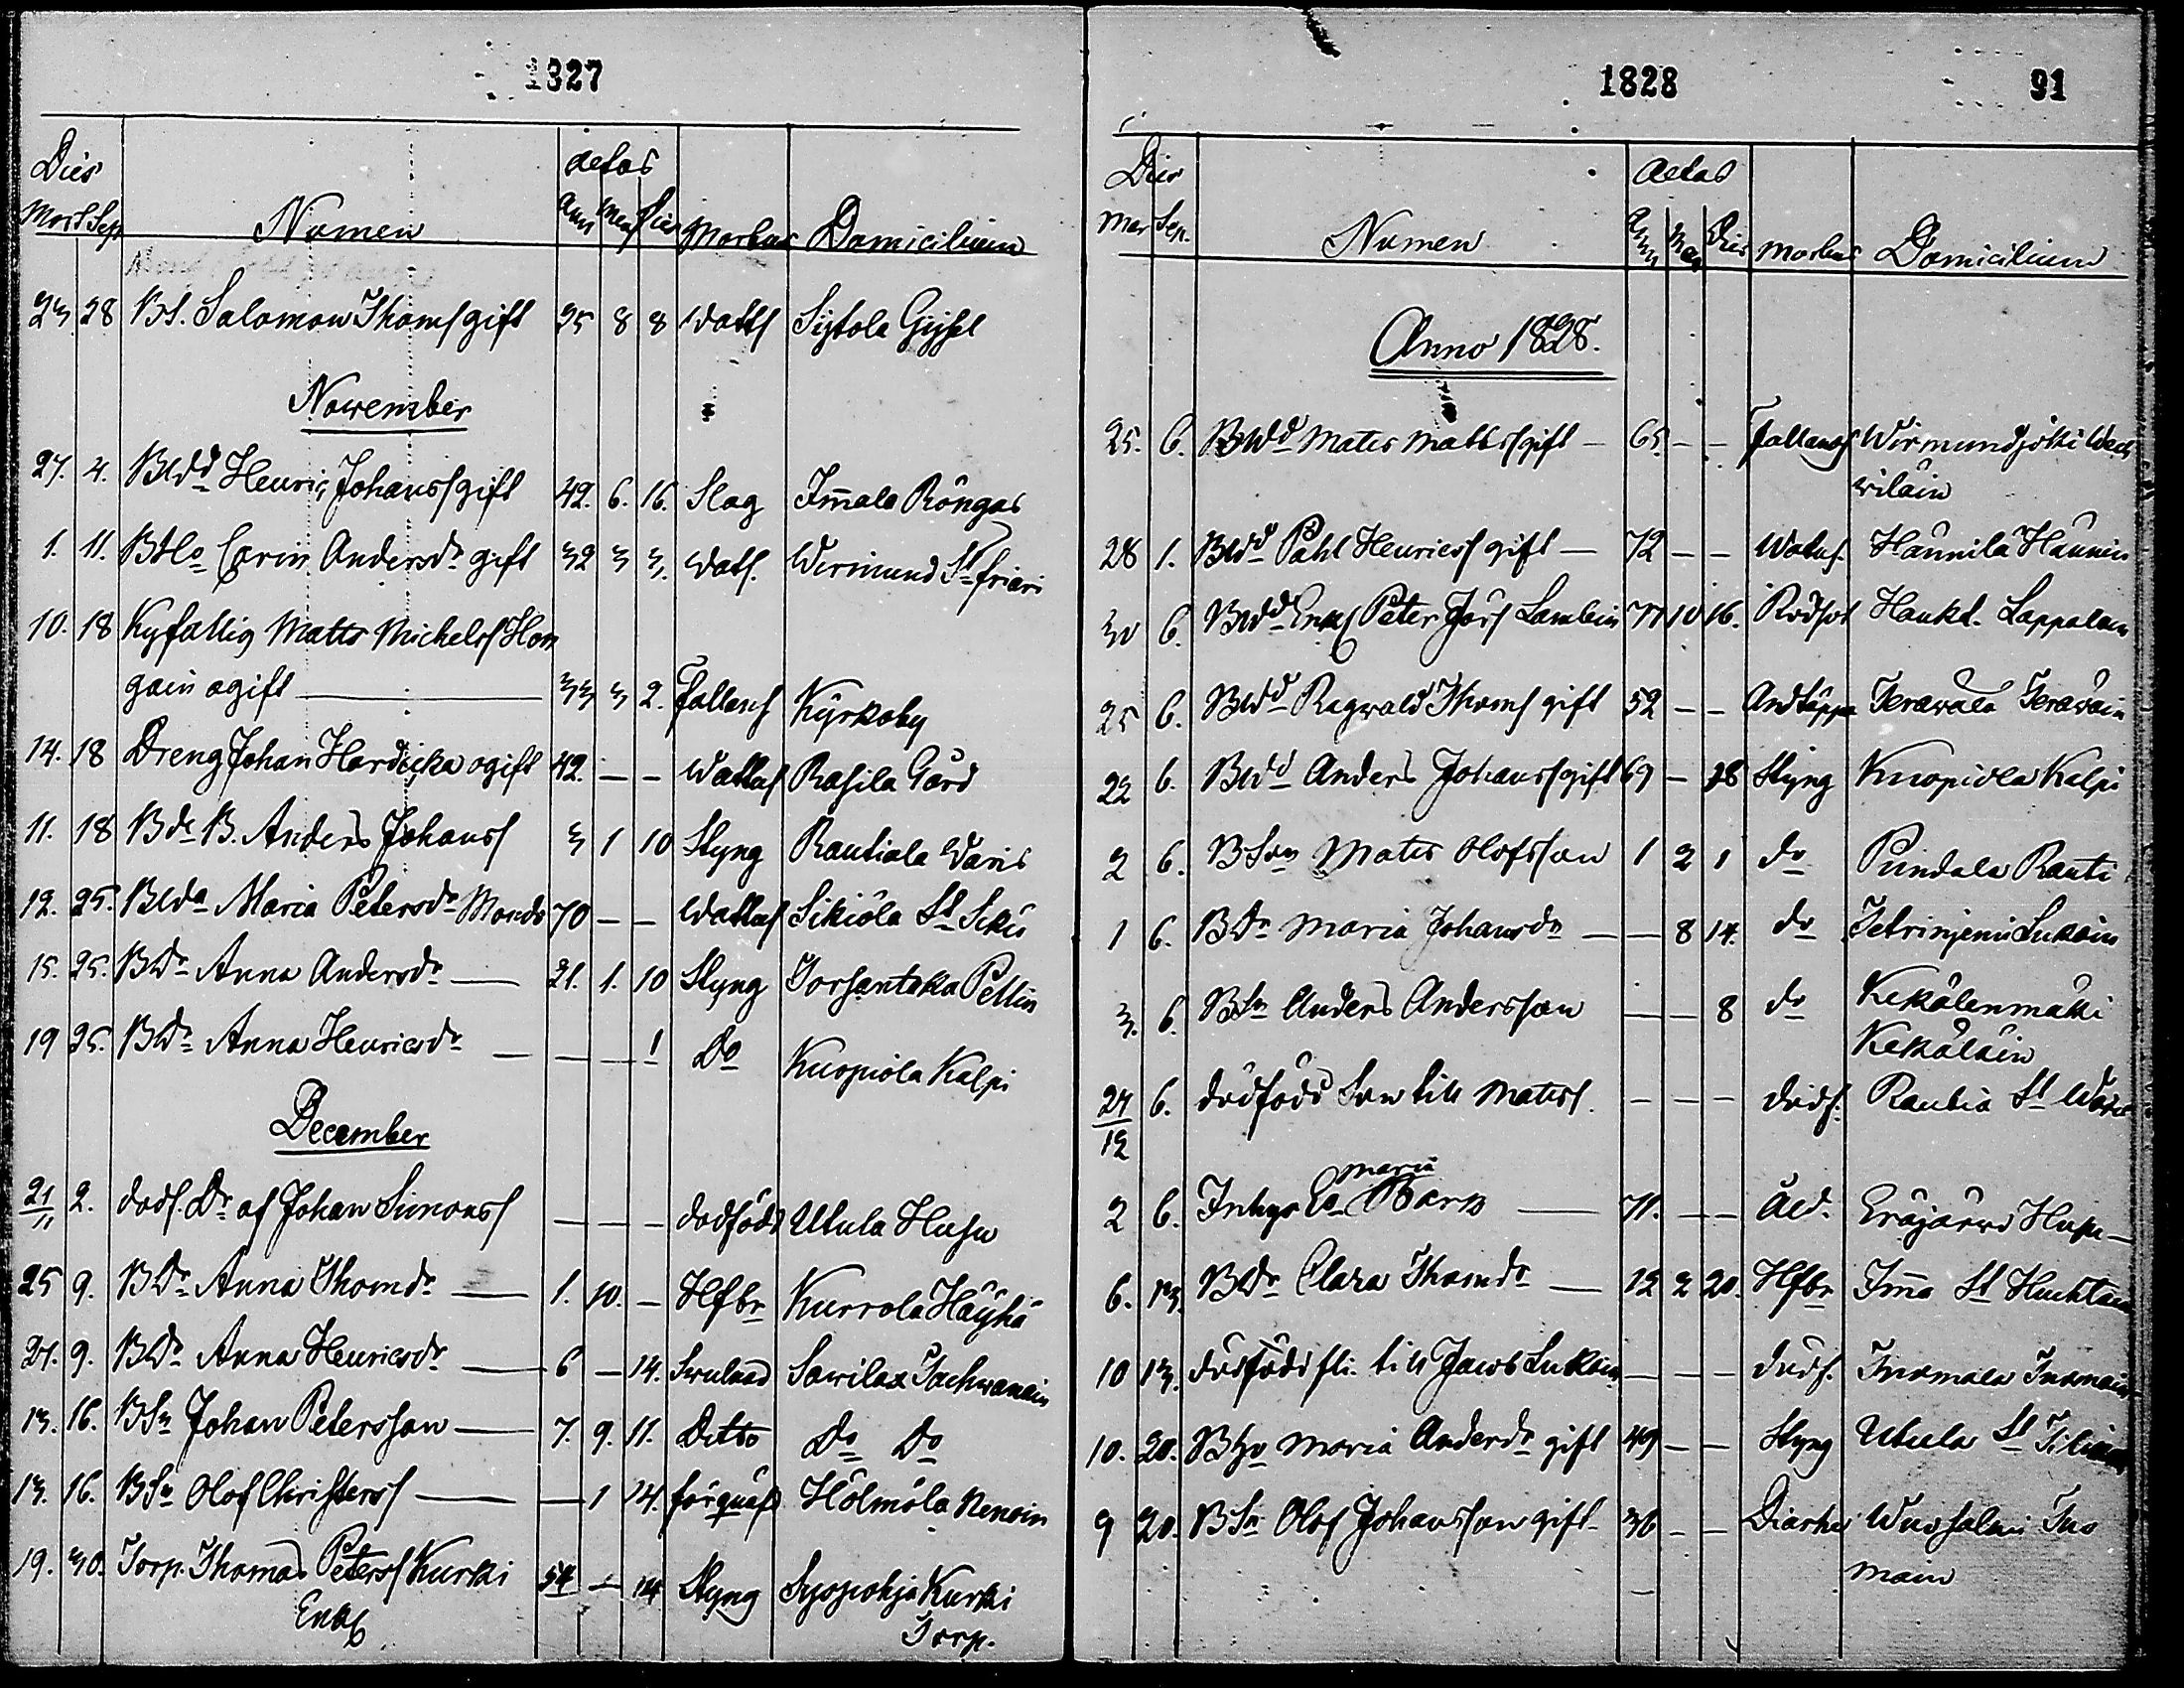 1827
Dies
aetas
Mort Sep
Nomen
Ann Men Dies
Morbus
Domicilium
23. 28 BS. Salomon Thomss gift 25 8 8 Watts Sijtola
November
27. 4. Bldd Henric Johanss gift 42. 6. 16. Slag Imala Röngas
1. 11. BHo Carin Andersdr gift 32 3 3. Wats. Wirmund St
10. 18 Matts Michelss Hon
gain ogift — 33 3 2. fallens Kyrkoby
14. 18 Dreng Johan Hardicka ogift 42. — — Wattus Rasila Gård
11. 18 Bde B. Anders Johanss 3 1 10 Styng Rautiala Waris
12. 25. Blda Maria Petersdr 70 — — Wattus Sikiöla St
15. 25. BDr Anna Andersdr — 21. 1. 10 Styng Torsantaka Pellin
19 25. BDr Anna Henricsdr — — — 1 Do Kuopiola Kalpi
December
21/11 2. dödf. Dr af Johan Simonss — — — dödfödd Utula Husu
25 9. BDr Anna Thomdr — 1. 10. — Hfbr Kurrola Häyhä
21. 9. BDr Anna Henricsdr — 6 — 14. Sawilax
13. 16. BSn Johan Petersson — 7. 9. 11. Ditto Do Do
13. 16. BSn Olof Christerss — — 1 14. förquäfd Hölmölä Nenoin
19. 30. Torp. Thomas Peterss Kurki 54 — 14 Styng Syspohja Kurki
Enkl Torp.
1828
91
Dies
Aetas
Mor Sep.
Nomen
Ann Men Dies
Morbus
Domicilium
Anno 1828.
25. 6. BWdd Matts Mattss gift — 65. — — fallands Wirmundjoki
wiläin
28 1. BWdd Påhl Henricss gift — 72 — — Watus. Hännilä Hännin
30 6. Bwdd Enkl Peter Jörs Lambin 77 10 16. Rödsot Haukl. Lappalain
25 6. Bwdd Ragwald Thomss gift 52 — — Andtäppa Terävälä Teräväin
22 6. BWdd Anders Johanss gift 69 — 28 Styng Kuopiola Kalpi
2 6. BSon Matts Olofsson 1 2 1 do Pundala Rauti
1 6. BDr Maria Johansdr — — 8 14. do Lukain
3. 6. BSn Anders Andersson — — 8 do Kekälenmäki
Kekäläin
24/12 6. dödfödd Son till Matts. — — — dödf. Rautia St
maria
2 6. Inhys — 71. — — Åld. Eräjärwi Hupu —
6. 13. BDr Clara Thomdr — 12 2 20. Hfbr Ima St Huuhtain
10 13. dödfödd fli. till Jacob Lukkain — — — dödf. Inomala Inomain
10. 20. BHo Maria Andersdr gift 49 — — Styng Utula St
9 20. BSn Olof Johansson gift 36 — — Wuosalmi Ino
main